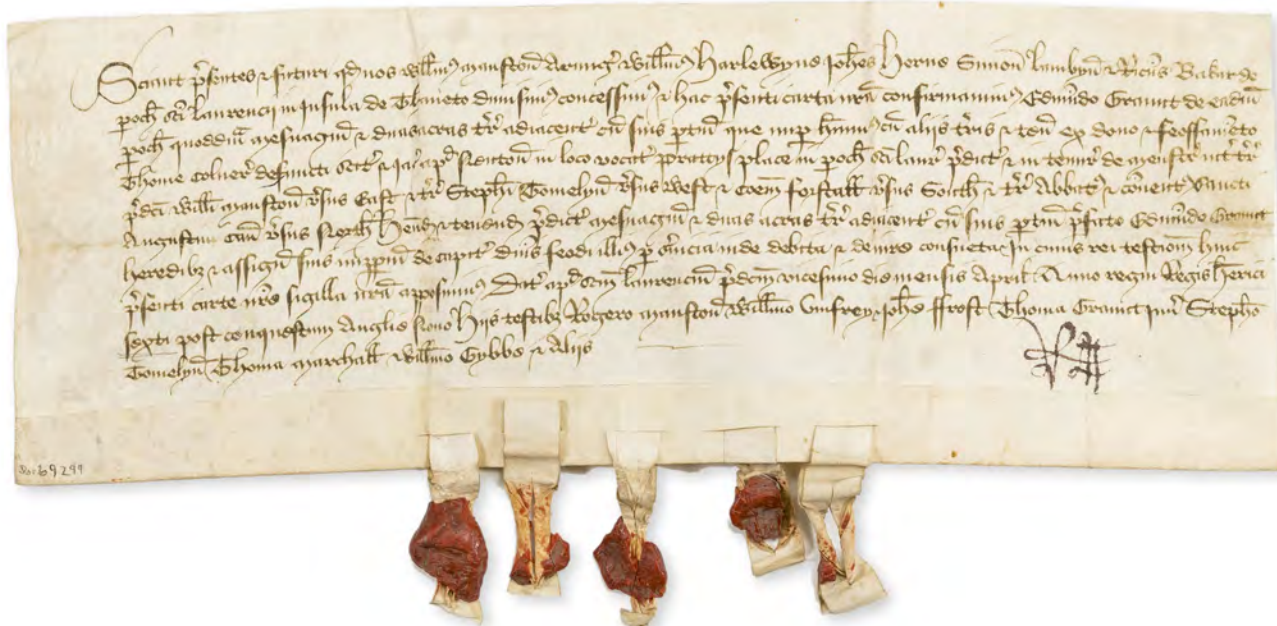 Sciant p̱sentes & futuri qd nos Willm̄s Manston Armig̃ Willm̄s Harlewyne Joħes Herne Simon Lambyn & Ric̃us Bakar de
poch̃ Sc̃i Laurencii in Insula de Thaneto dimisim̃ concessim̃ & hac p̱senti carta nr̃a confirmavim̃ Edmũdo Graunt de ead̃m
poch̃ quoddam mesuagiũ & duas acras t̃r adiacent̃ cũ suis p̱tiñ que nup̱ h̃uim̃ cũ aliis t̃ris & teñ ex dono & feoffam̃to
Thome Colner̃ defuncti scit̃ & iac̃ apd̃ Newton in loco vocat̃ Prattys place in poch̃ Sc̃i Laur̃ p̱dict̃ & in tenur̃ de Menstr̃ int̃ t̃r
p̱dc̃i Willi Manston v̱sus East & t̃r Stephi Tomelyn v̱sus West & Coem̃ Forstall v̱sus South & t̃r Abbatis & convent̃ Sancti
Augustini Cañt v̱sus North Hend̃ & tenend̃ p̱dict̃ mesuagiũ & duas acras t̃r adiacent̃ cũ suis p̱tiñ p̱fato Edmũdo Graunt
heredibz & assigñ suis imp̱pm̃ de capit̃ dñis feodi illius p̱ s̃vicia inde debita & de iure consueta In cuius rei testiom̃ huic
p̱senti carte nr̃e sigilla nr̃a apposuim̃ Dat̃ apd̃ Sc̃m Laurenciũ p̱dc̃m vicesimo die mensis April̃ Anno regni Regis Henrici
sexti post conquestum Anglie Nono Hiis testibz Rogero Manston Willm̃o Umfrey Joh̃e ffrost Thoma Graunt iuñ Stepho
Tomelyn Thoma Marchall Willm̃o Gybbe & Aliis